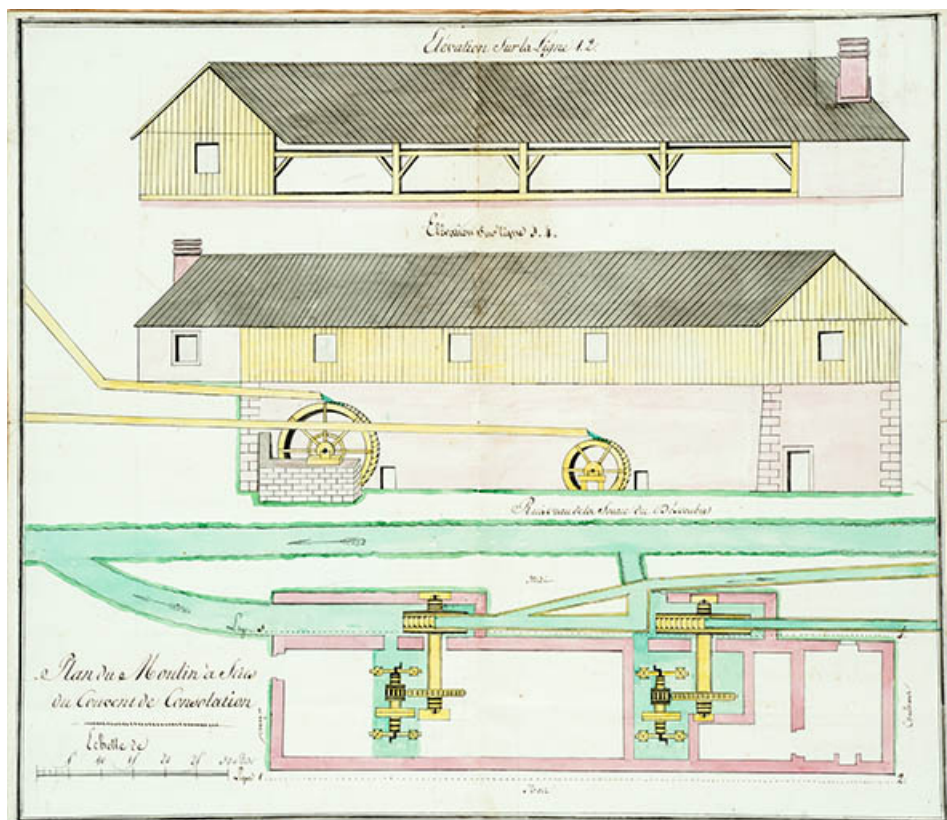 Elévation Sur la Ligne 1.2.
Elévation Sur ligne 3.4.
Ruisseau de la Source du
Midi
Plan du Moulin à Scies
du Couvent de Consolation
Echelle de
5 10 15 20 25
Ligne 1.
2.